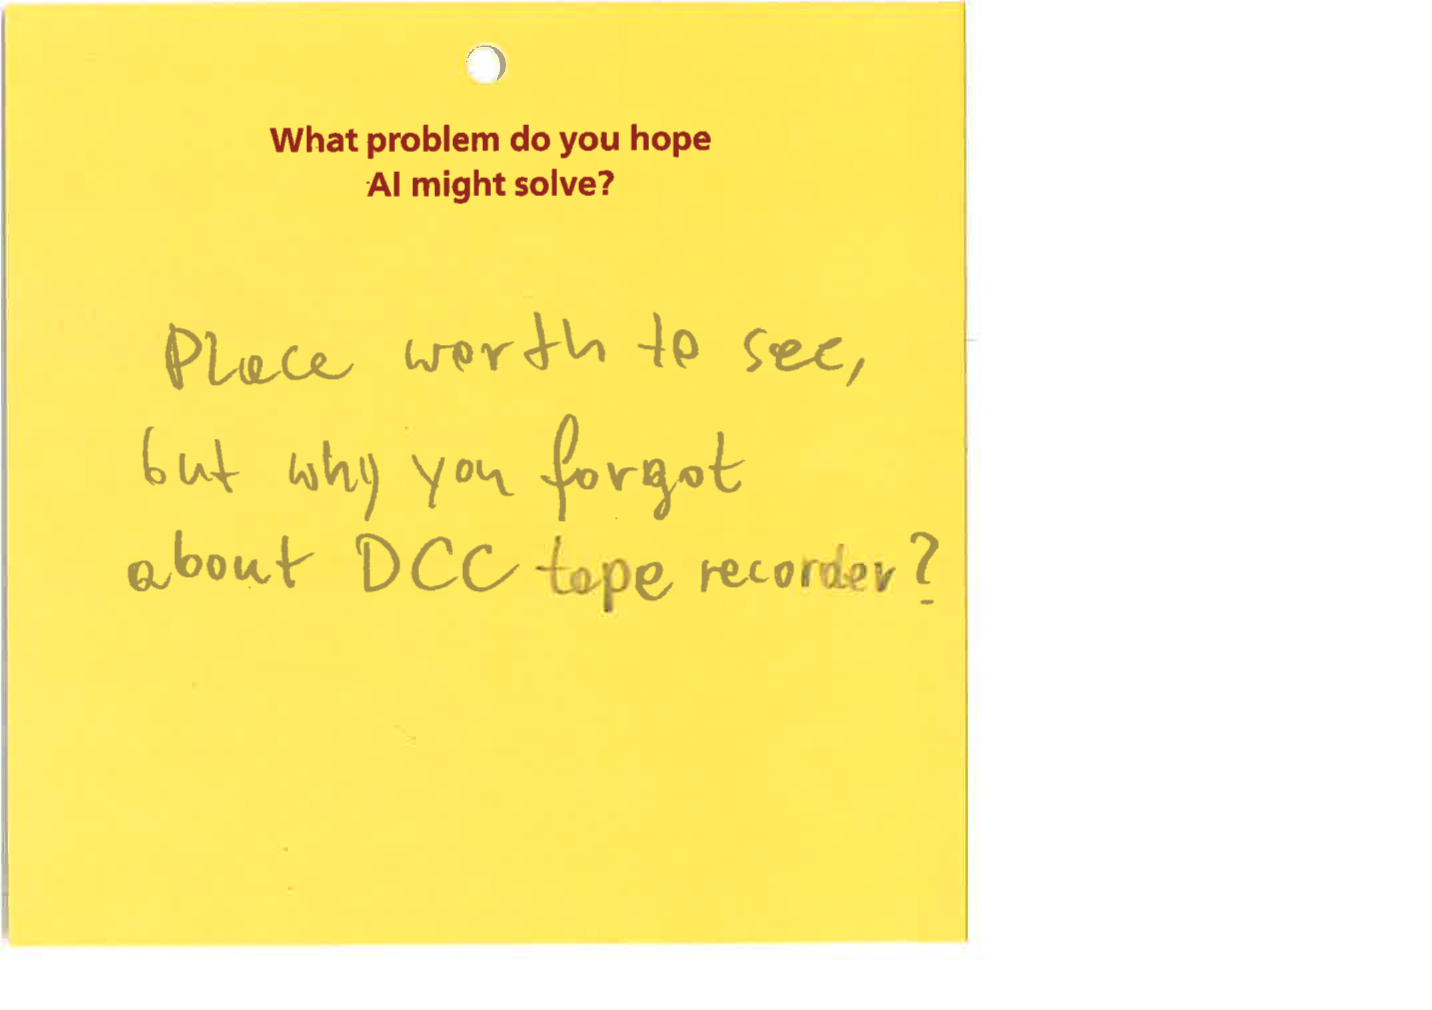 What problem do you hope
AI might solve?
Place worth to see,
but why you forgot
about DCC tape recorder?